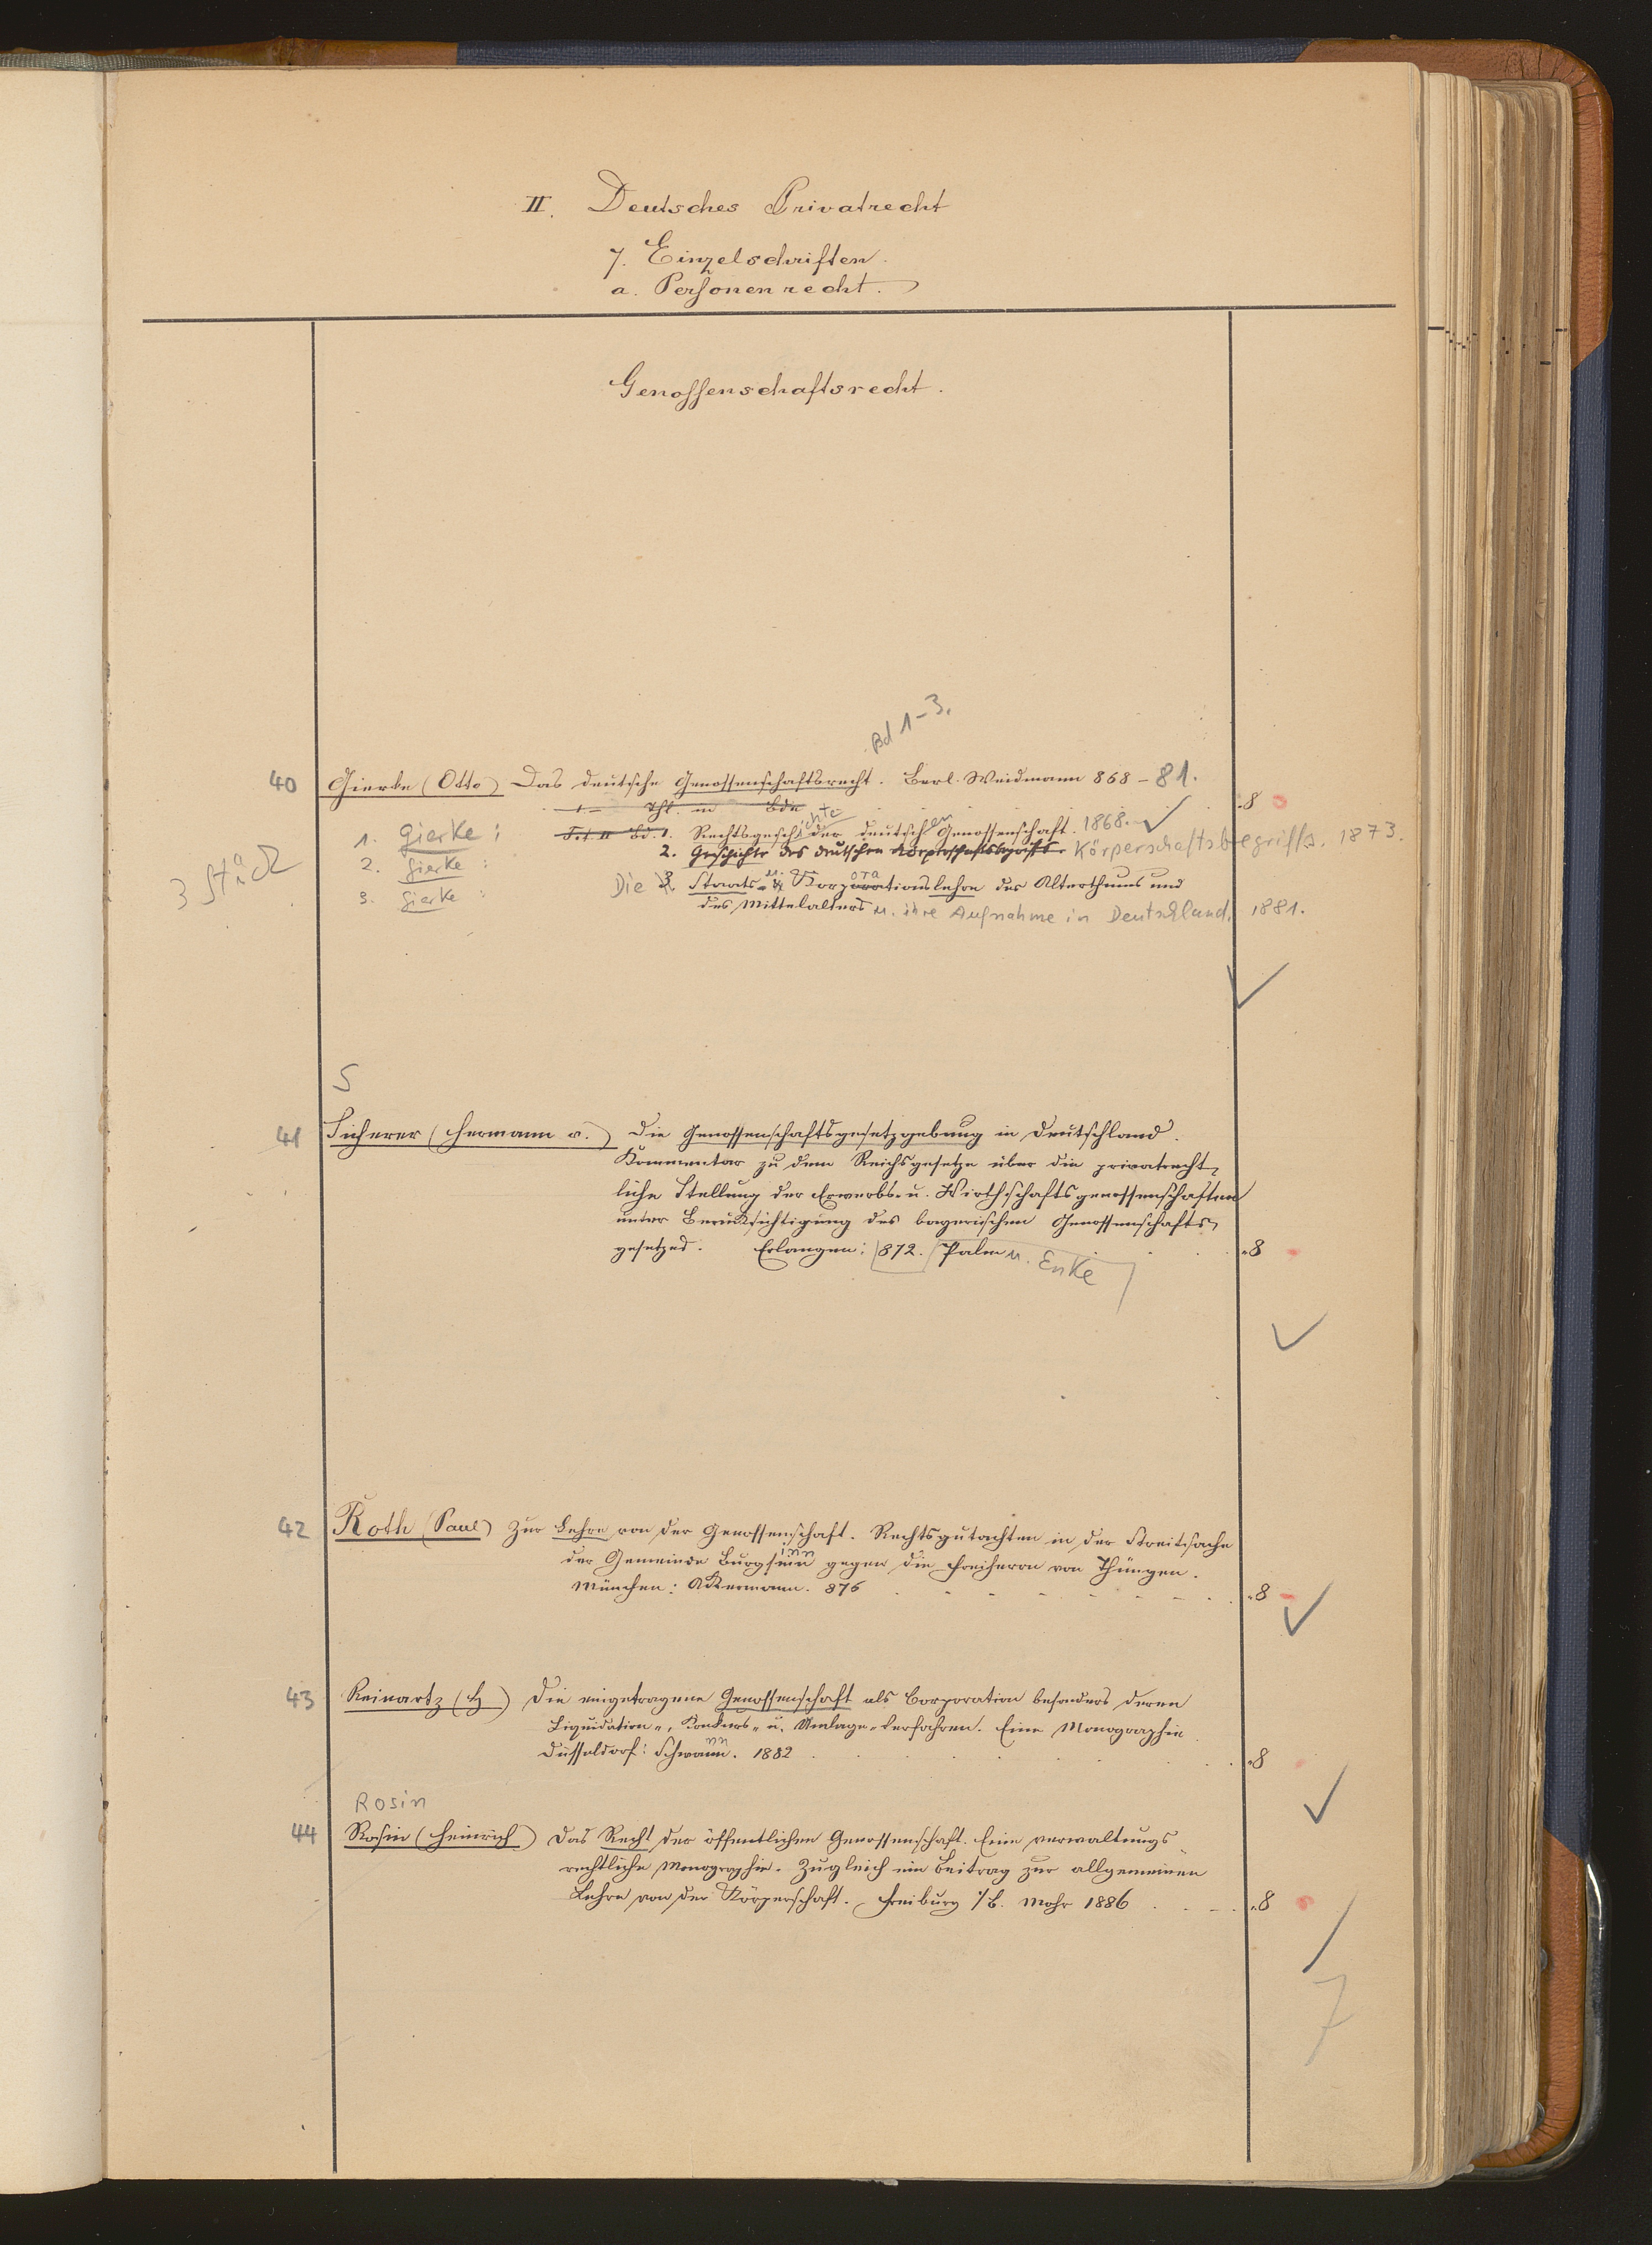 II. Deutsches Privatrecht
7. Einzelschriften.
a. Personenrecht.
Genossenschaftsrecht.
Bd 1-3.
40 Gierke (Otto) Das deutsche Genossenschaftsrecht. Berl. Weidmann 868 - 81.
1 - Thl. in Bde 8
1. Gierke: Bd. 1. Rechtsgeschichte der deutschen Genossenschaft. 1868.
2. Gierke: 2. Geschichte des deutschen Körperschaftsbegriffs. Körperschaftsbegriffs. 1873.
3 Stück
3. Gierke: Die 3 Staats- u. Korporationslehre des Alterthums und
des Mittelalters u. ihre Aufnahme in Deutschland, 1881.
S
41 Sicherer (Hermann v.) Die Genossenschaftsgesetzgebung in Deutschland.
Kommentar zu dem Reichsgesetze über die privatrecht-
liche Stellung der Erwerbs- u. Wirthschaftsgenossenschaften
unter Berücksichtigung des bayerischen Genossenschafts-
gesetzes. Erlangen: 872. Palm u. Enke 8
42 Roth (Paul) Zur Lehre von der Genossenschaft. Rechtsgutachten in der Streitsache
der Gemeinde Burgsinn gegen die Freiherrn von Thüngen.
München: Ackermann. 876 8
43 Reinartz (H) Die eingetragene Genossenschaft als Corporation besonders deren
Liquidation-, Konkurs- u. Umlage-Verfahren. Eine Monographie.
Düsseldorf: Schwann. 1882 8
Rosin
44 Rosin (Heinrich) Das Recht der öffentlichen Genossenschaft. Eine verwaltungs
rechtliche Monographie. Zugleich ein Beitrag zur allgemeinen
Lehre von der Körperschaft. Freiburg i/B. Mohr 1886 8
7